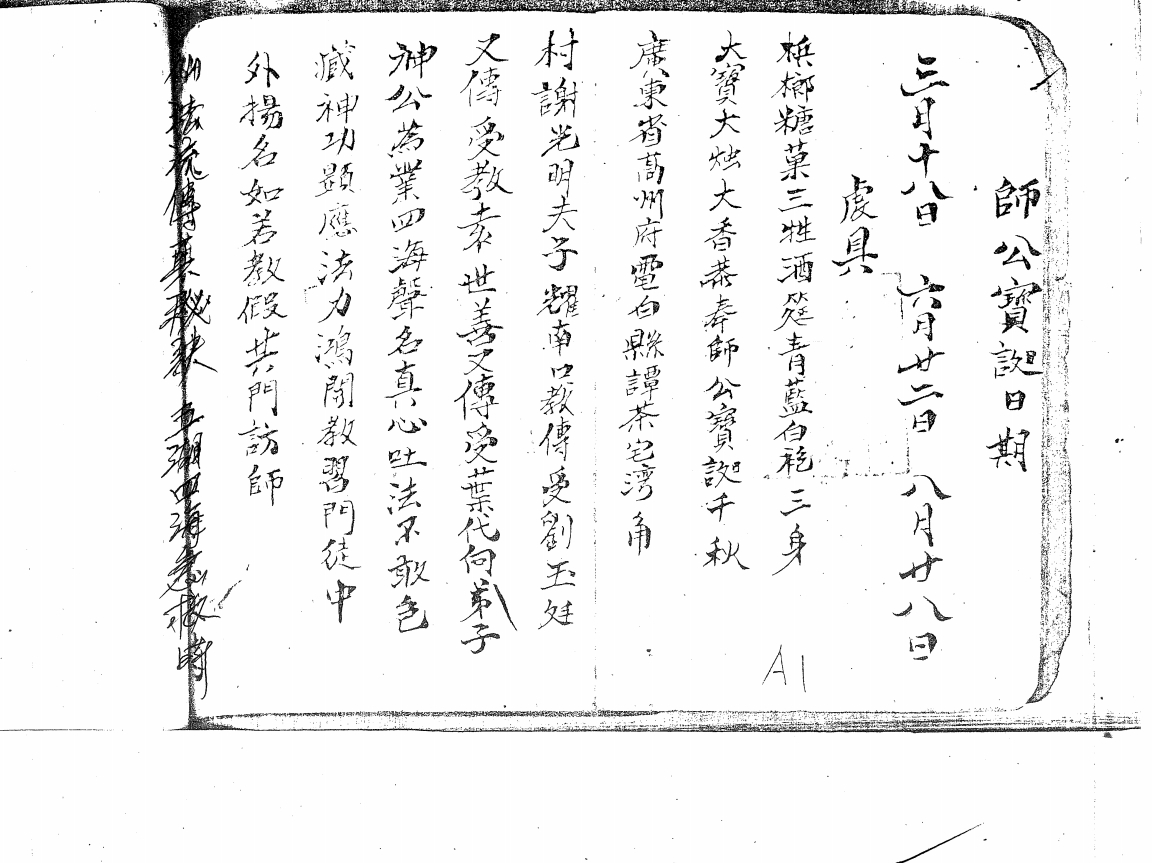 師公寶誕日期
三月十八日 六月廿二日 八月廿八日
虔具
檳榔糖菓三牲酒筵青藍白袍三身
大寶大燭大香恭奉師公寶誕千秋
廣東省高州府電白縣譚茶宅湾角
村謝光明夫子耀南口教傳受劉玉廷
又傳受教袁世善又傳受葉代向弟子
神公為業四海聲名真心吐法不敢色
藏神功顕應法力鴻開教習門徒中
外揚名如若教假共門訪師
法 傳真秘訣 五湖四海急救時
A1